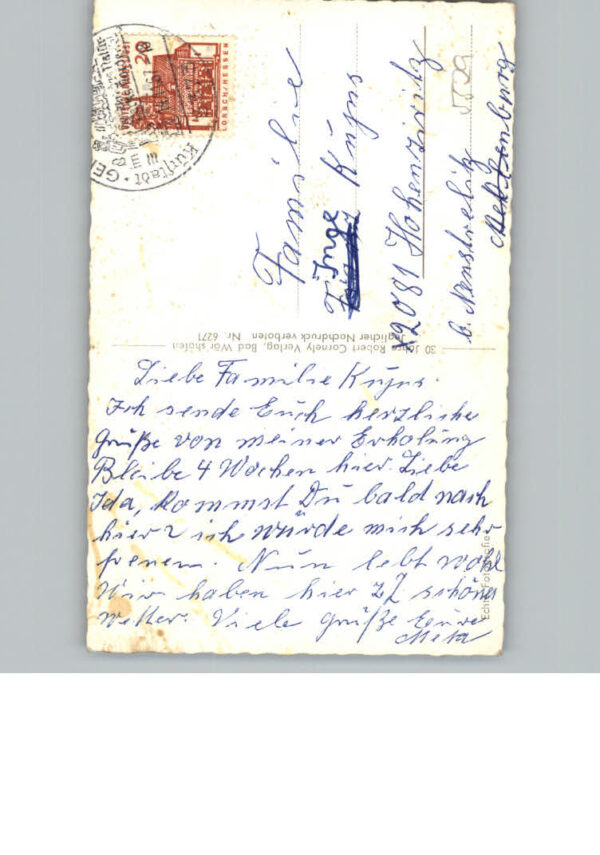 20
LORSCH/HESSEN
Kurstadt
Familie
Inge Kujus
12081 Hohenzieritz
b. Neustrelitz
Mecklenburg
5529
30 Jahre Robert Cornely Verlag, Bad Wörishofen
Jeglicher Nachdruck verboten Nr. 6271
Liebe Familie Kujus.
Ich sende Euch herzliche
Grüße von meiner Erholung
Bleibe 4 Wochen hier. Liebe
Ida, kommst Du bald nach
hier? ich würde mich sehr
freuen. Nun lebt wohl
Wir haben hier zZ schönes
Wetter. Viele Grüße Eure
Meta